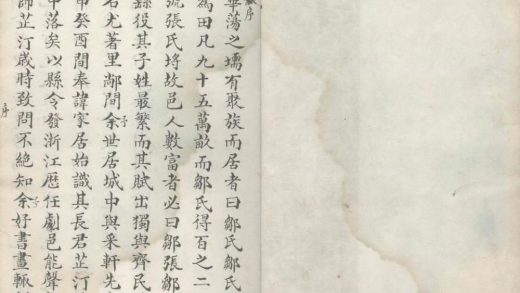 序
華蕩之壖有聚族而居者曰鄒氏鄒氏
為田凡九十五萬畝而鄒氏得百之二
張氏埒故邑人數富者必曰鄒張鄒
繇役其子姓最繁而其賦出獨與齊民
名尤著里鄰間余世居城中與采軒先
予
申癸酉間奉諱家居始識其長君芷汀
中落矣以縣令發浙江歷任劇邑能聲
師芷汀歲時致問不絕知余好書畫輒
予
序